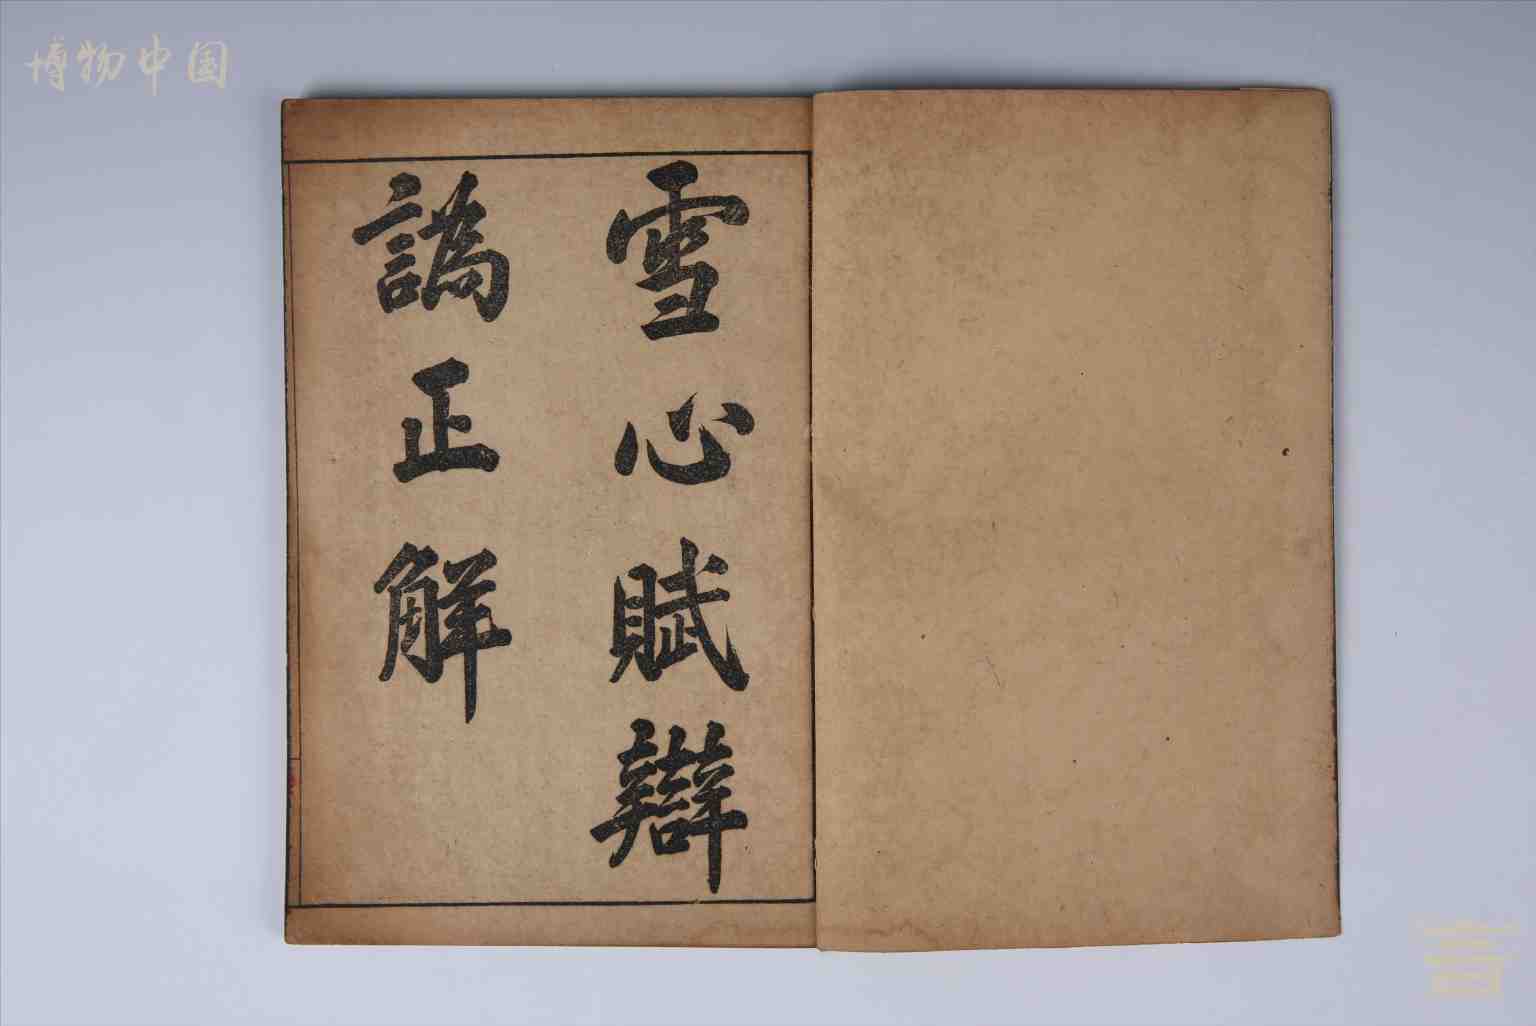 博物中国
雪心賦辯
譌正解